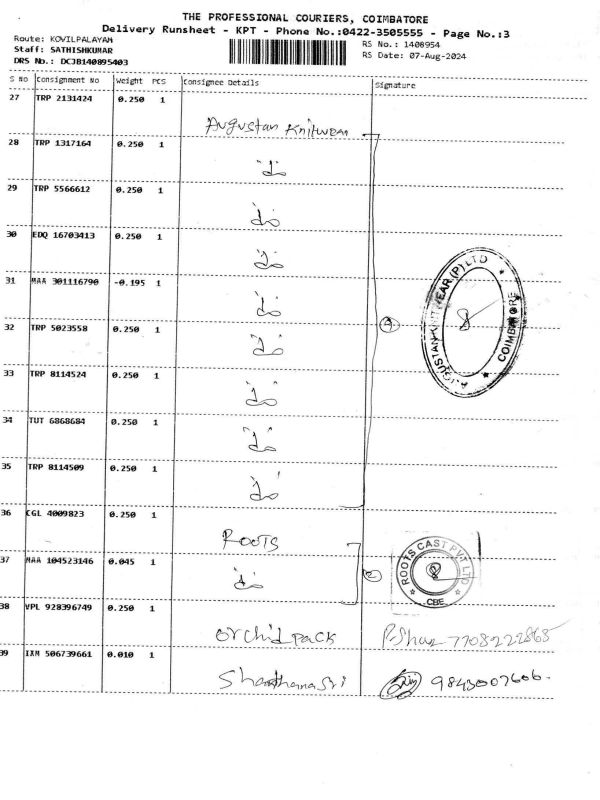 THE PROFESSIONAL COURIERS, COIMBATORE
Delivery Runsheet - KPT - Phone No.:0422-3505555 - Page No.:3
Route: KOVILPALAYAM
Staff: SATHISHKUMAR
DRS No.: DCJB140895403
RS No.: 1408954
RS Date: 07-Aug-2024
S No Consignment No Weight PCS Consignee Details Signature
27 TRP 2131424 0.250 1 Augustan Knitwear
28 TRP 1317164 0.250 1 "do"
29 TRP 5566612 0.250 1 "do
30 EDQ 16703413 0.250 1 "do"
31 MAA 301116790 -0.195 1 "do"
32 TRP 5023558 0.250 1 "do"
33 TRP 8114524 0.250 1 "do"
34 TUT 6868684 0.250 1 "do"
35 TRP 8114509 0.250 1 "do"
AUGUSTAN KNITWEAR (P) LTD
COIMBATORE
8
36 CGL 4009823 0.250 1 ROOTS
37 MAA 104523146 0.045 1 "do"
2
ROOTS CAST PVT LTD
CBE
38 VPL 928396749 0.250 1 orchid pack 7708222868
39 IXM 506739661 0.010 1 Shanthanasri 9843007606